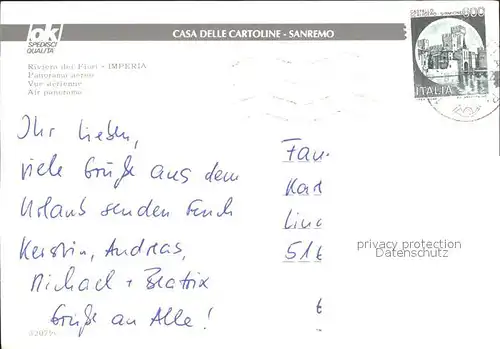 ok
SPEDISCI
QUALITÀ
CASA DELLE CARTOLINE - SANREMO
Riviera dei Fiori - IMPERIA
Panorama aereo
Vue aerienne
Air panorama
600
ITALIA
Ihr Lieben,
viele Grüße aus dem
Urlaub senden Euch
Kerstin, Andreas,
Michael + Beatrix
Grüße an Alle!
Fam.
Karl
Lind
518
privacy protection
Datenschutz